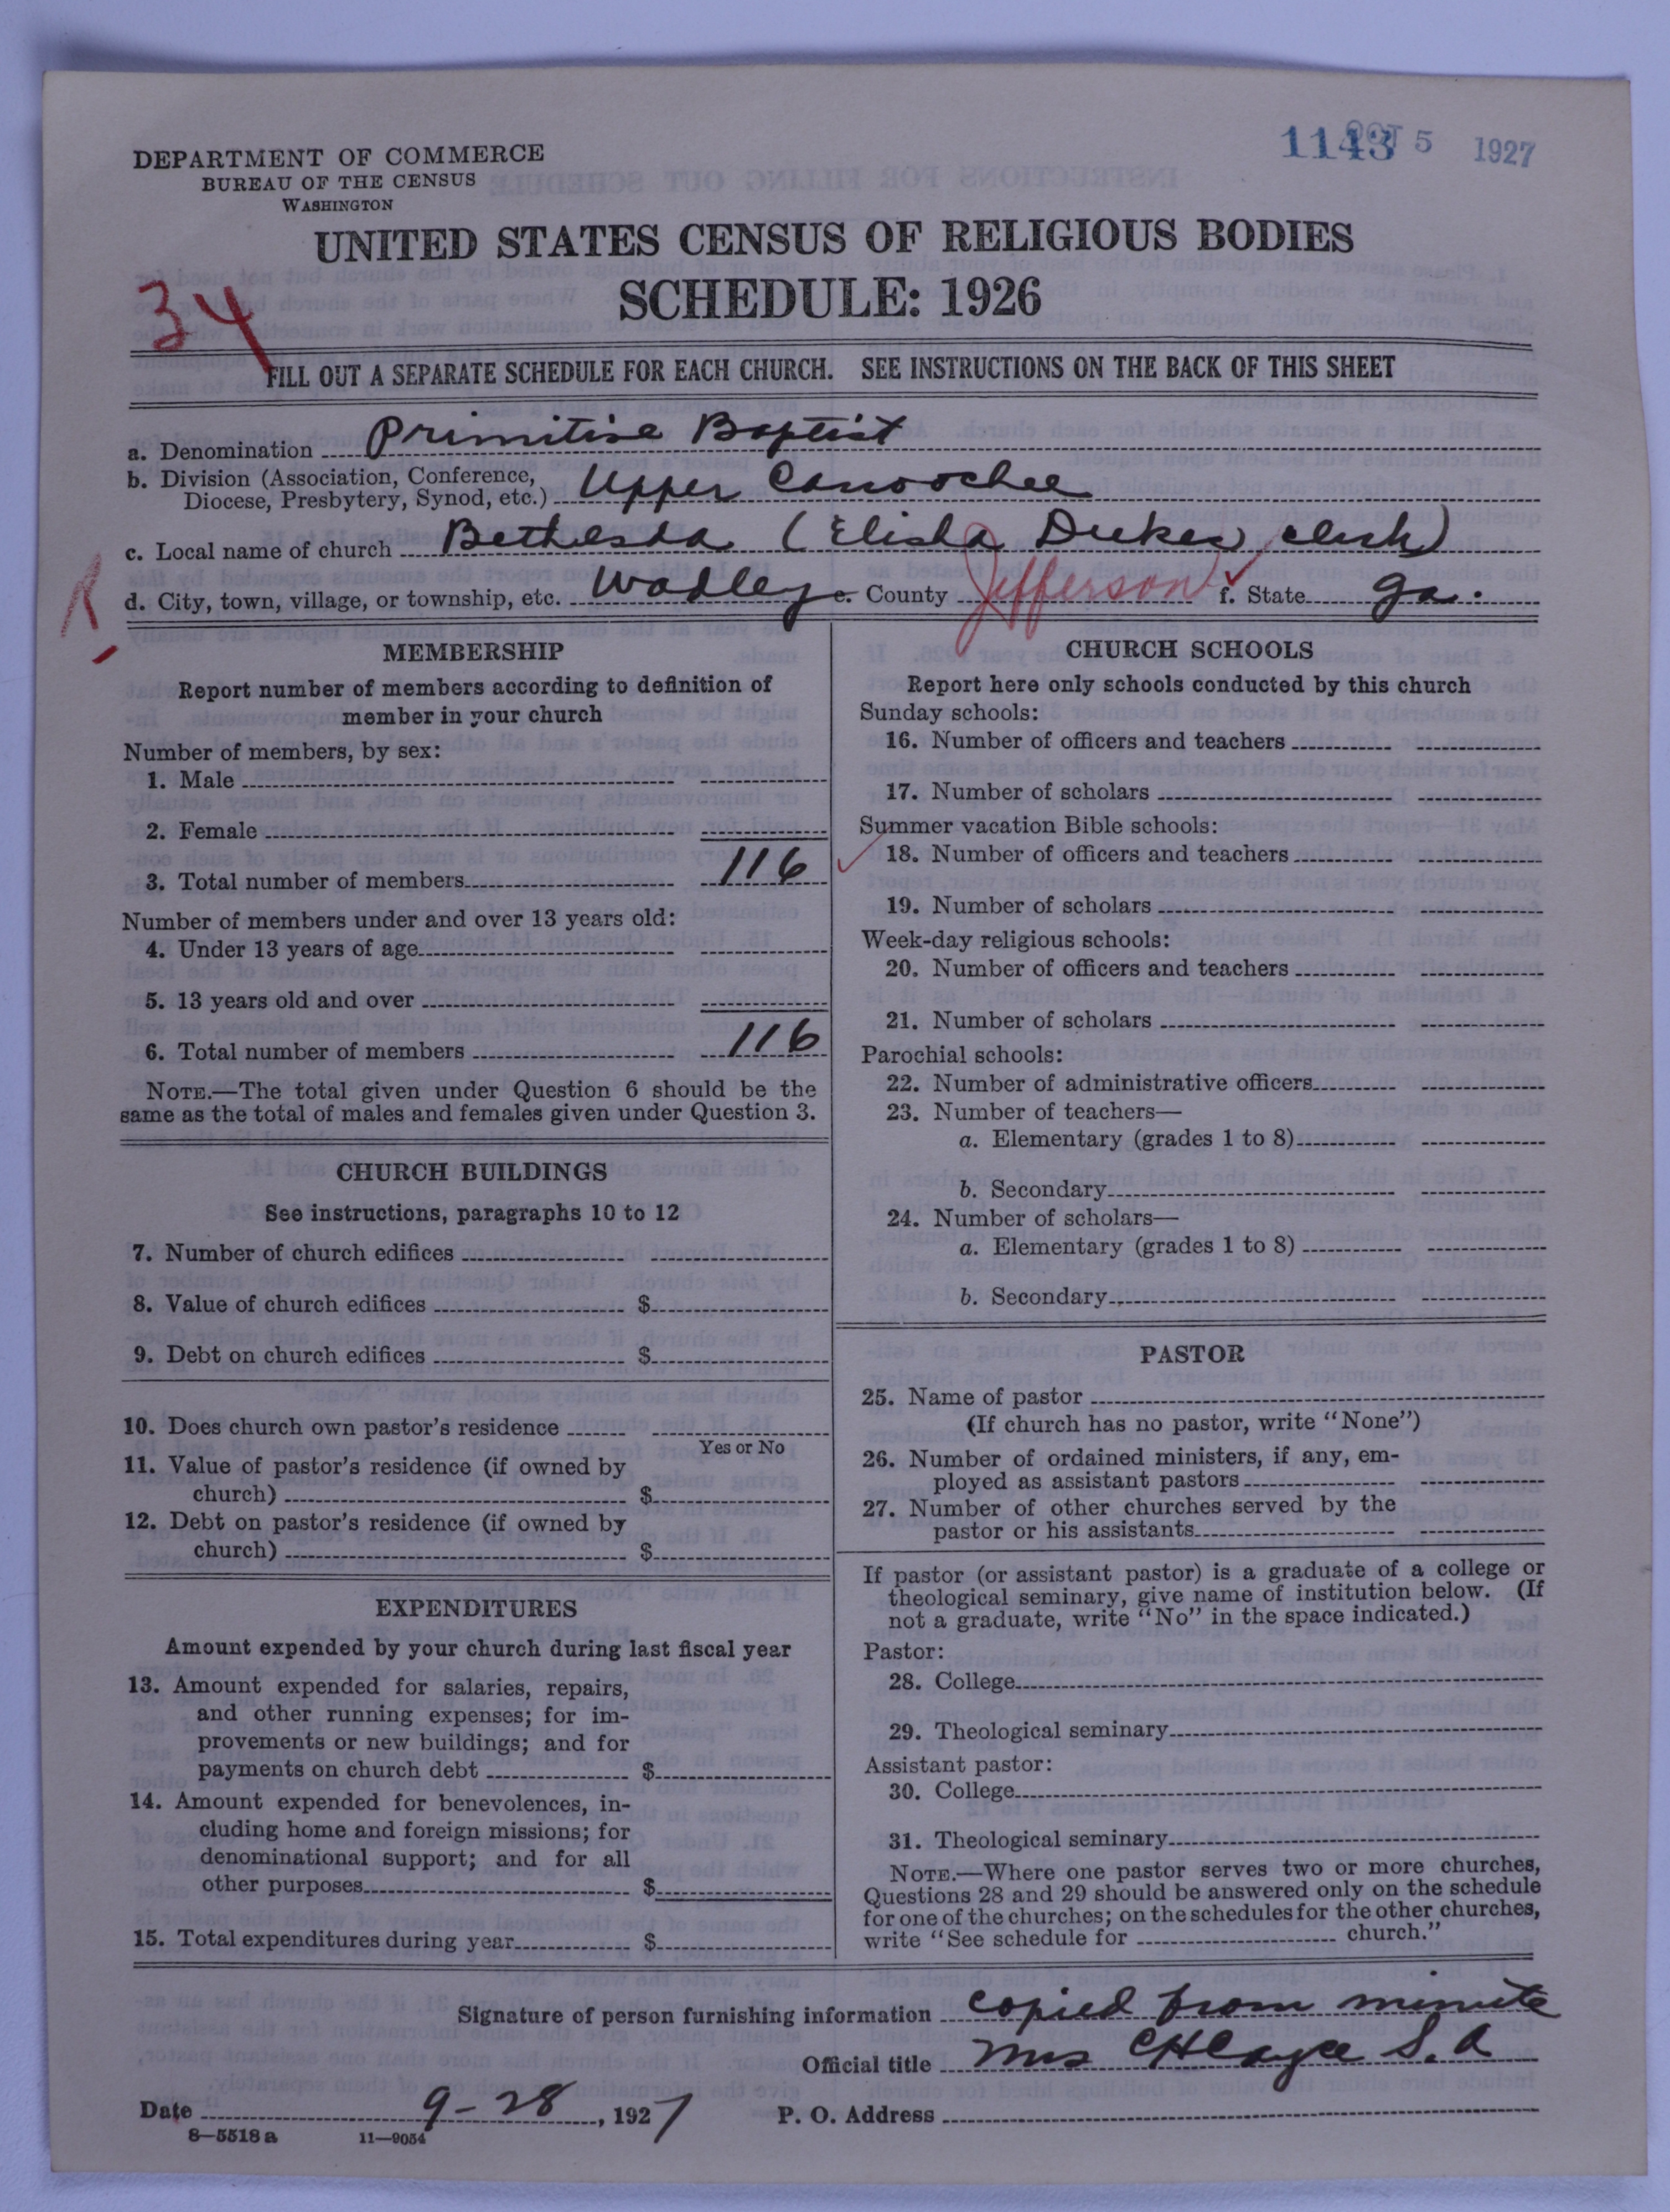 1143 OCT 5 1927
DEPARTMENT OF COMMERCE
BUREAU OF THE CENSUS
WASHINGTON
UNITED STATES CENSUS OF RELIGIOUS BODIES
SCHEDULE: 1926
34
FILL OUT A SEPARATE SCHEDULE FOR EACH CHURCH. SEE INSTRUCTIONS ON THE BACK OF THIS SHEET
a. Denomination Primitive Baptist
b. Division (Association, Conference,
Diocese, Presbytery, Synod, etc.) Upper Canoochee
c. Local name of church Bethesda (Elisha Dukes, clerk)
d. City, town, village, or township, etc. Wadley e. County Jefferson f. State Ga.
MEMBERSHIP
Report number of members according to definition of
member in your church
Number of members, by sex:
1. Male
2. Female
3. Total number of members 116
Number of members under and over 13 years old:
4. Under 13 years of age
5. 13 years old and over
6. Total number of members 116
NOTE.—The total given under Question 6 should be the
same as the total of males and females given under Question 3.
CHURCH BUILDINGS
See instructions, paragraphs 10 to 12
7. Number of church edifices
8. Value of church edifices $
9. Debt on church edifices $
10. Does church own pastor's residence
Yes or No
11. Value of pastor's residence (if owned by
church) $
12. Debt on pastor's residence (if owned by
church) $
EXPENDITURES
Amount expended by your church during last fiscal year
13. Amount expended for salaries, repairs,
and other running expenses; for im-
provements or new buildings; and for
payments on church debt $
14. Amount expended for benevolences, in-
cluding home and foreign missions; for
denominational support; and for all
other purposes $
15. Total expenditures during year $
CHURCH SCHOOLS
Report here only schools conducted by this church
Sunday schools:
16. Number of officers and teachers
17. Number of scholars
Summer vacation Bible schools:
18. Number of officers and teachers
19. Number of scholars
Week-day religious schools:
20. Number of officers and teachers
21. Number of scholars
Parochial schools:
22. Number of administrative officers
23. Number of teachers—
a. Elementary (grades 1 to 8)
b. Secondary
24. Number of scholars—
a. Elementary (grades 1 to 8)
b. Secondary
PASTOR
25. Name of pastor
(If church has no pastor, write "None")
26. Number of ordained ministers, if any, em-
ployed as assistant pastors
27. Number of other churches served by the
pastor or his assistants
If pastor (or assistant pastor) is a graduate of a college or
theological seminary, give name of institution below. (If
not a graduate, write "No" in the space indicated.)
Pastor:
28. College
29. Theological seminary
Assistant pastor:
30. College
31. Theological seminary
NOTE.—Where one pastor serves two or more churches,
Questions 28 and 29 should be answered only on the schedule
for one of the churches; on the schedules for the other churches,
write "See schedule for church."
Signature of person furnishing information copied from minute
Official title Mrs C H Cayce S. A
Date 9-28, 1927 P. O. Address
8—5518 a 11—9054